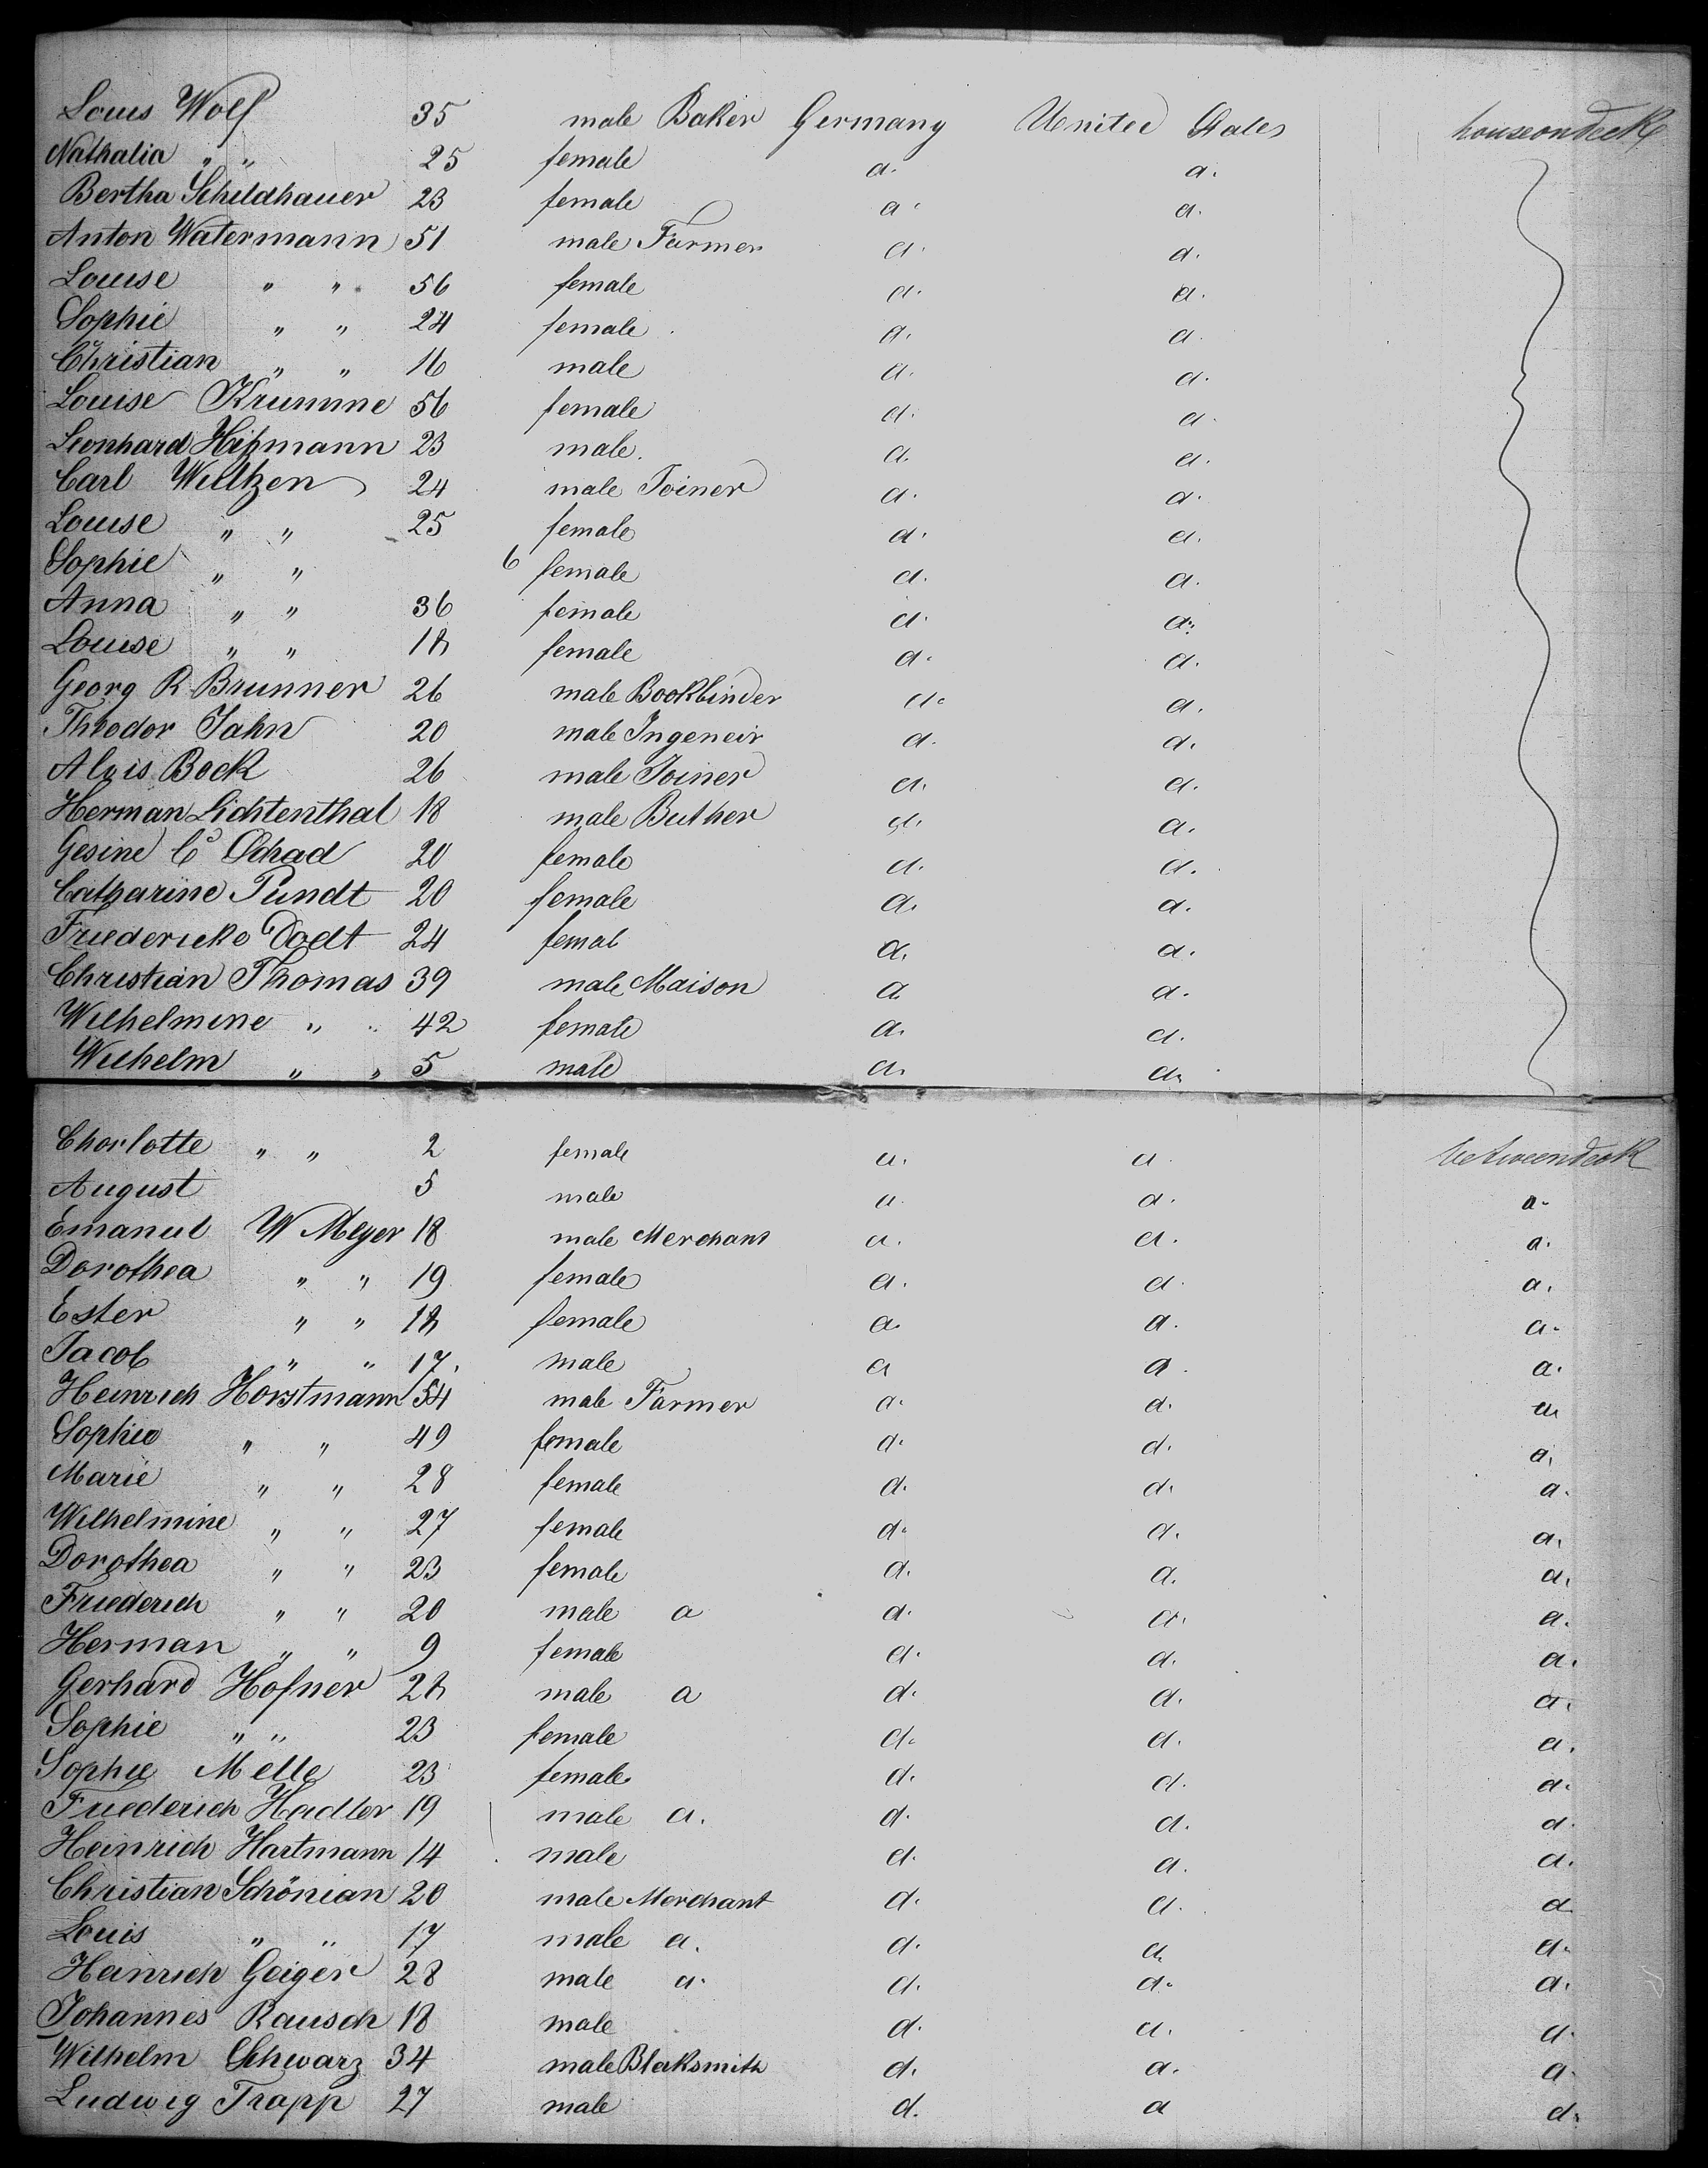 Louis Wolf 35 male Baker Germany United States houseondeck
Nathalia " " 25 female a. a.
Bertha Schildhauer 23 female a. a.
Anton Watermann 51 male Farmer a. a.
Louise " " 56 female a. a.
Sophie " " 24 female a. a.
Christian " " 16 male a. a.
Louise Krumme 56 female a. a.
Leonhard 23 male a. a.
Carl Wiltzen 24 male Joiner a. a.
Louise " " 25 female a. a.
Sophie " " 6 female a. a.
Anna " " 36 female a. a.
Louise " " 18 female a. a.
Georg R Brunner 26 male Bookbinder a. a.
Theodor Jahn 20 male Ingeneir a. a.
Alois Bock 26 male Joiner a. a.
Herman Lichtenthal 18 male Buther a. a.
Gesine C Schad 20 female a. a.
Catharine Pundt 20 female a. a.
Friedericke Dodt 24 femal a. a.
Christian Thomas 39 male Maison a. a.
Wilhelmine " " 42 female a. a.
Wilhelm " " 5 male a. a.
Chorlotte " " 2 female a. a. betweendeck
August 5 male a. a. a.
Emanuel W Meyer 18 male Merchant a. a. a.
Dorothea " " 19 female a. a. a.
Ester " " 18 female a. a. a.
Jacob " " 17. male a a. a.
Heinrich Horstmann 54 male Farmer a. a. a.
Sophie " " 49 female a. a. a.
Marie " " 28 female a. a. a.
Wilhelmine " " 27 female a. a. a.
Dorothea " " 23 female a. a. a.
Friederich " " 20 male a a. a. a.
Herman " " 9 female a. a. a.
Gerhard Hofner 28 male a a. a. a.
Sophie " " 23 female a. a. a.
Sophie Melle 23 female a. a. a.
Friederich Heidler 19 male a. a. a. a.
Heinrich Hartmann 14 male a. a. a.
Christian Schönian 20 male Merchant a. a. a.
Louis " " 17 male a. a. a. a.
Heinrich Geiger 28 male a. a. a. a.
Johannes Rausch 18 male a. a. a.
Wilhelm Schwarz 34 male Blaksmith a. a. a.
Ludwig Trapp 27 male a. a a.